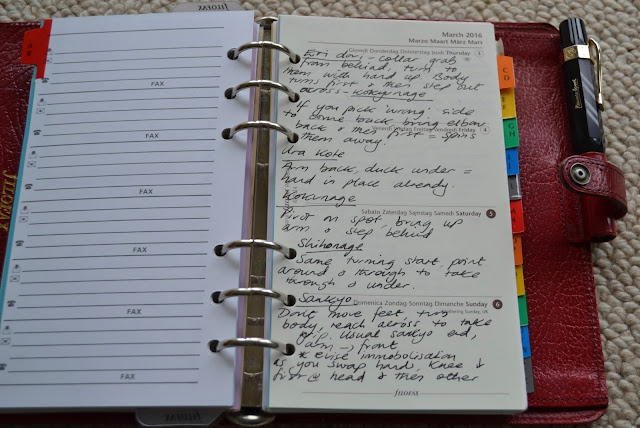 FAX
FAX
FAX
FAX
FAX
FAX
March 2016
Marzo Maart März Mars
Giovedì Donderdag Donnerstag Jeudi Thursday 3
Eri dori - collar grab
from behind, turn to
them with hand up. Body
turn first & then step out
across - Kokyunage
If you pick 'wrong' side
to come back, bring elbow
Venerdì Vrijdag Freitag Vendredi Friday 4
back & then first = spins
them away.
Ura Kote
Arm back, duck under =
hand in place already.
Kokyunage
Sabato Zaterdag Samstag Samedi Saturday 5
Pivot on spot, bring up
arm & step behind
Shihonage
Same turning start point
around & through to take
through & under.
Domenica Zondag Sonntag Dimanche Sunday 6
Sankyo
Mothering Sunday, UK
Don't move feet, turn
body, reach across to take
grip. Usual sankyo end,
arm → front
immobilisation
as you swap hand, knee ↓
first @ head & then other
FILOFAX
C
D
G
H